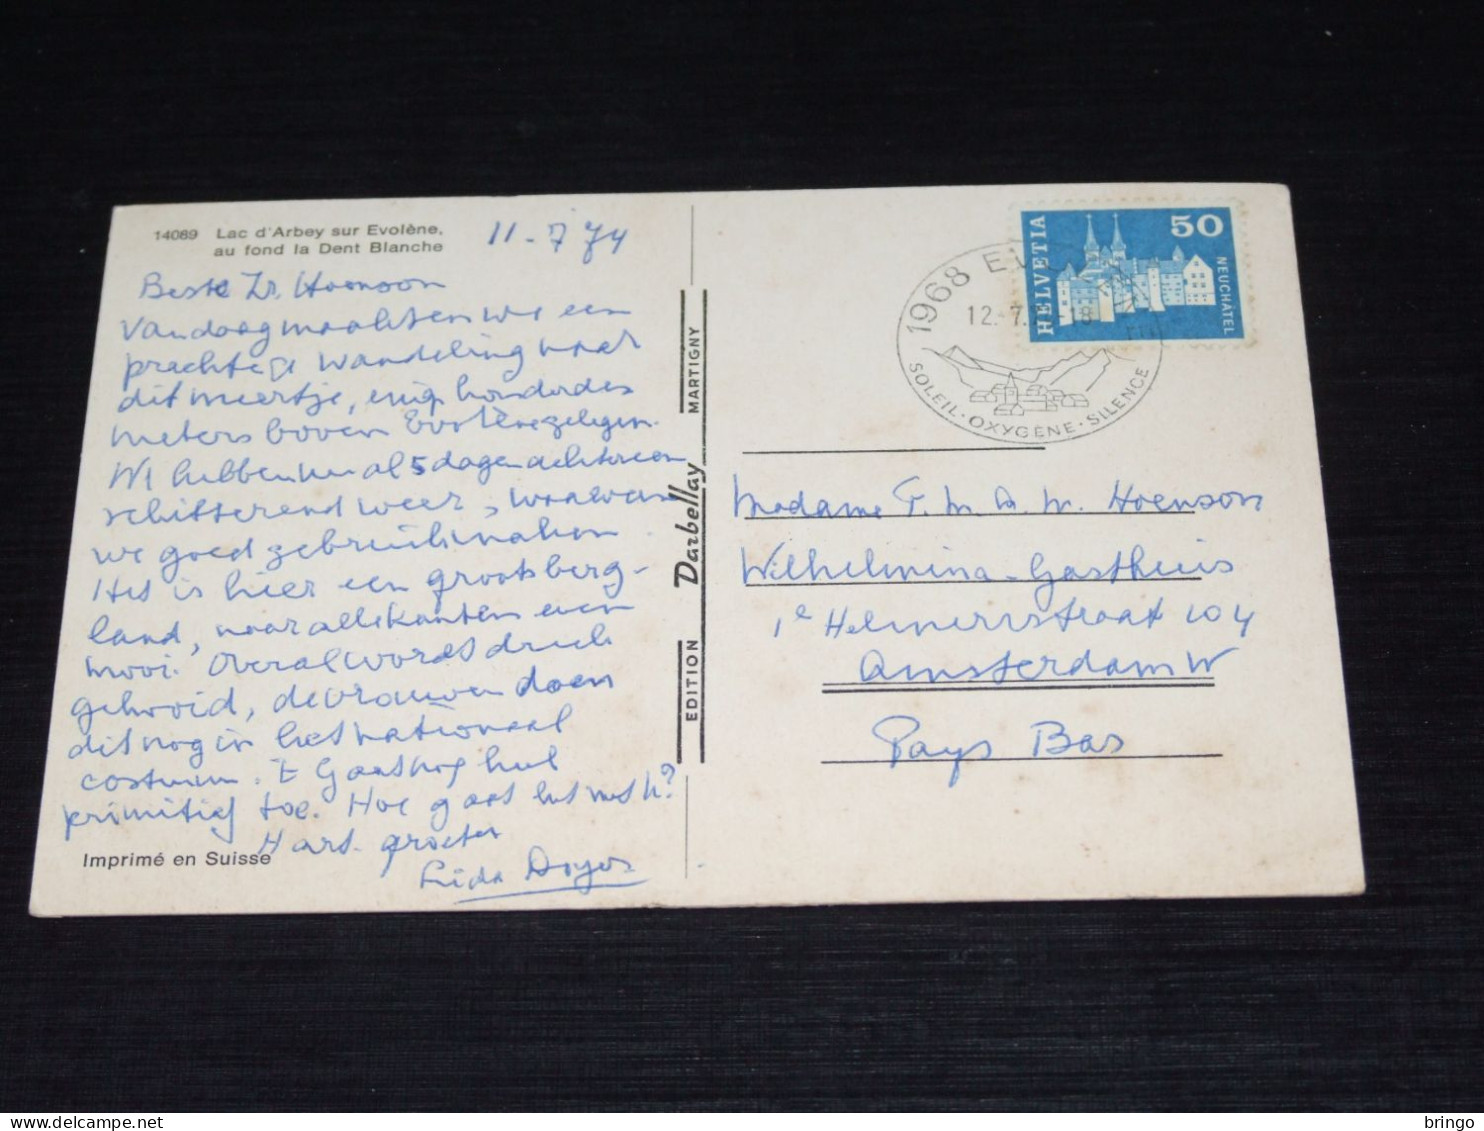 14089 Lac d'Arbey sur Evolène,
au fond la Dent Blanche
11-7 74
Beste Zr. Hoenson
Vandaag maakten we een
prachtige wandeling naar
dit meertje, enige honderden
meters boven Evolène gelegen.
We hebben nu al 5 dagen achtereen
schitterend weer, waarvan
we goed gebruik maken.
Het is hier een groots berg-
land, naar alle kanten even
mooi. Overal wordt druk
gehooid, de vrouwen doen
dit nog in het nationaal
costuum. 't Gaat nog heel
primitief toe. Hoe gaat het met U?
Hart. groeten
Lida
Imprimé en Suisse
EDITION Darbellay MARTIGNY
HELVETIA
50
NEUCHÂTEL
1968 EVOLÈNE
12.-7. 18
SOLEIL · OXYGÈNE · SILENCE
Madame F. M. A. W. Hoenson
Wilhelmina-Gasthuis
1e Helmersstraat 104
Amsterdam W
Pays Bas
delcampe.net
bringo